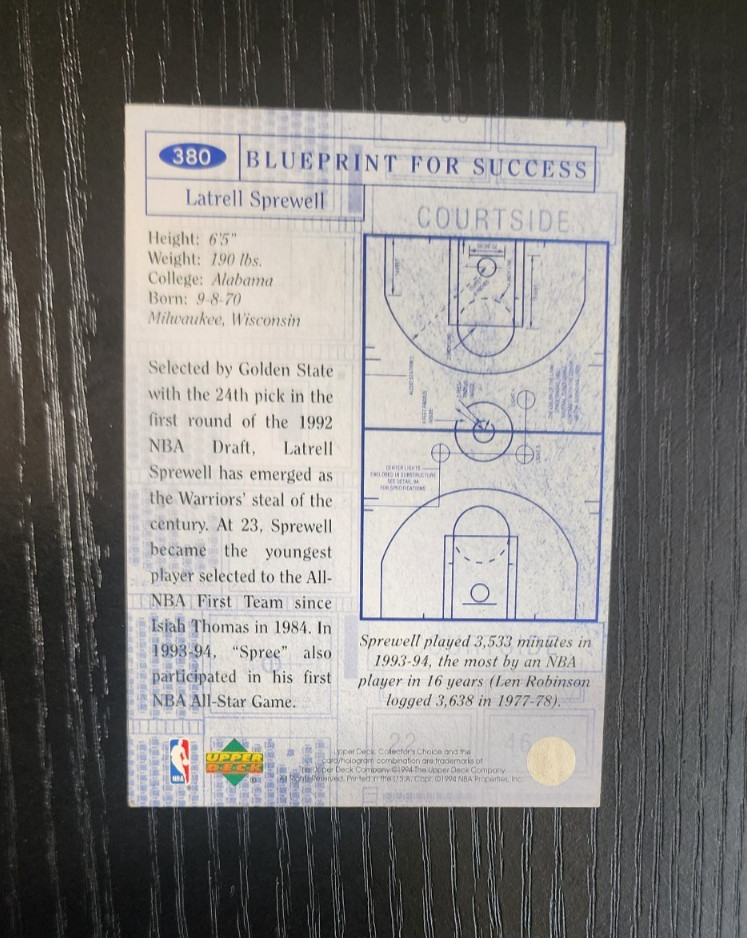 380
BLUEPRINT FOR SUCCESS
Latrell Sprewell
COURTSIDE
Height: 6'5"
Weight: 190 lbs.
College: Alabama
Born: 9-8-70
Milwaukee, Wisconsin
Selected by Golden State
with the 24th pick in the
first round of the 1992
NBA Draft, Latrell
Sprewell has emerged as
the Warriors' steal of the
century. At 23, Sprewell
became the youngest
player selected to the All-
NBA First Team since
Isiah Thomas in 1984. In
1993-94, "Spree" also
participated in his first
NBA All-Star Game.
CENTER LIGHTS
ENCLOSED IN SUBSTRUCTURE
SEE DETAIL 9A
FOR SPECIFICATIONS
Sprewell played 3,533 minutes in
1993-94, the most by an NBA
player in 16 years (Len Robinson
logged 3,638 in 1977-78).
22
16
NBA
UPPER
DECK
Upper Deck, Collector's Choice and the
card/hologram combination are trademarks of
The Upper Deck Company. ©1994 The Upper Deck Company.
All Rights Reserved. Printed in the U.S.A. Copr. ©1994 NBA Properties, Inc.